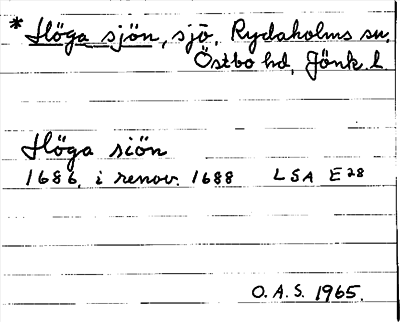 * Höga sjön, sjö, Rydaholms sn,
Östbo hd, Jönk. l
Höga siön
1686, i renov. 1688 LSA E28
O.A.S. 1965.